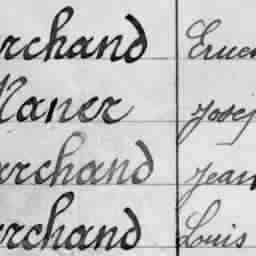 archand Ernes
Maner Josep
archand Jean
archand Louis